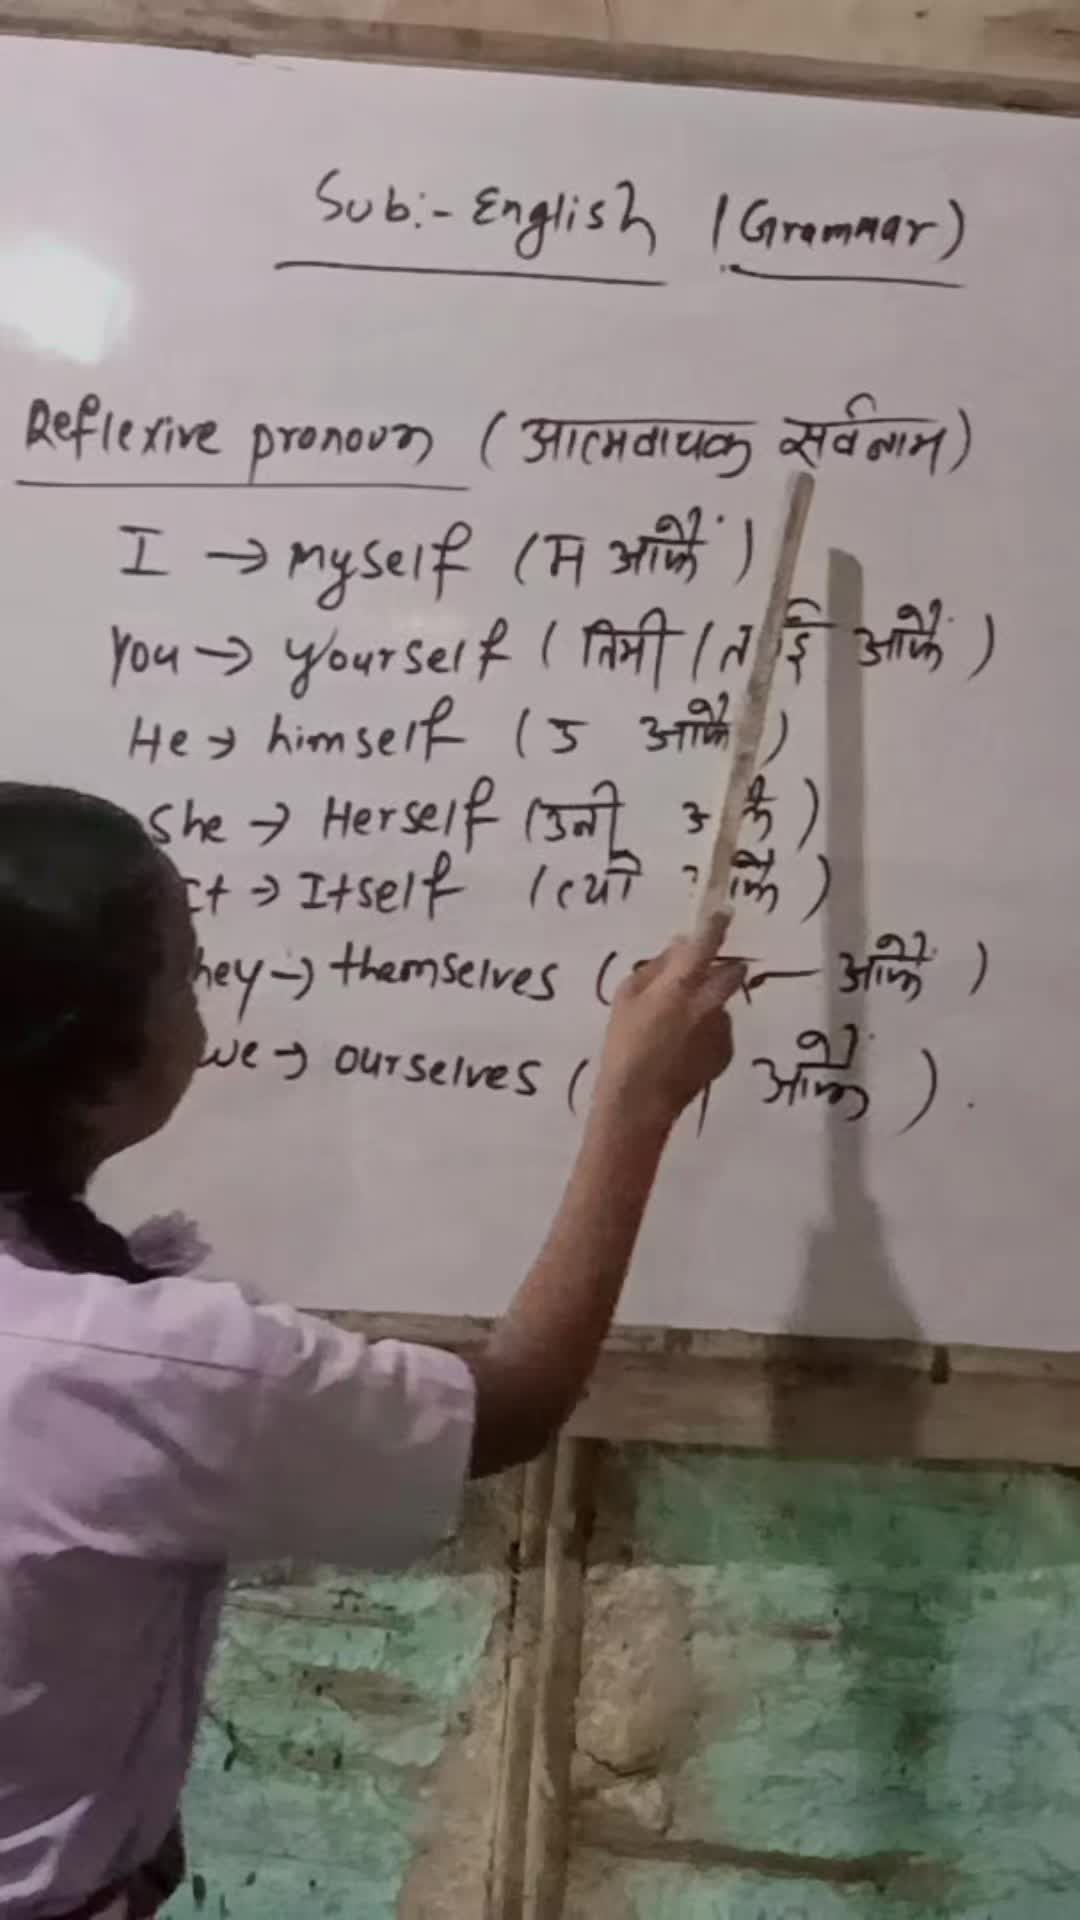 Sub:- English (Grammar)
Reflexive pronoun (आत्मवाचक सर्वनाम)
I → myself (म आफैं)
You → yourself (तिमी / आफैं)
He → himself (उ आफैं)
She → Herself (उनी)
It → Itself (त्यो)
→ themselves ( आफैं)
we → ourselves ( आफैं).